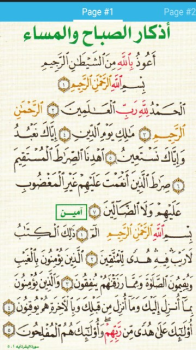 Page #1 Page #2
أذكار الصباح والمساء
أَعُوذُ بِاللَّهِ مِنَ الشَّيْطَانِ الرَّجِيمِ
بِسْمِ اللَّهِ الرَّحْمَٰنِ الرَّحِيمِ ١
الْحَمْدُ لِلَّهِ رَبِّ الْعَالَمِينَ ٢ الرَّحْمَٰنِ
الرَّحِيمِ ٣ مَالِكِ يَوْمِ الدِّينِ ٤ إِيَّاكَ نَعْبُدُ
وَإِيَّاكَ نَسْتَعِينُ ٥ اهْدِنَا الصِّرَاطَ الْمُسْتَقِيمَ
٦ صِرَاطَ الَّذِينَ أَنْعَمْتَ عَلَيْهِمْ غَيْرِ الْمَغْضُوبِ
عَلَيْهِمْ وَلَا الضَّالِّينَ ٧ آمين
بِسْمِ اللَّهِ الرَّحْمَٰنِ الرَّحِيمِ الم ١ ذَٰلِكَ الْكِتَابُ
لَا رَيْبَ فِيهِ هُدًى لِلْمُتَّقِينَ ٢ الَّذِينَ يُؤْمِنُونَ بِالْغَيْبِ
وَيُقِيمُونَ الصَّلَاةَ وَمِمَّا رَزَقْنَاهُمْ يُنْفِقُونَ ٣ وَالَّذِينَ يُؤْمِنُونَ
بِمَا أُنْزِلَ إِلَيْكَ وَمَا أُنْزِلَ مِنْ قَبْلِكَ وَبِالْآخِرَةِ هُمْ يُوقِنُونَ ٤
أُولَٰئِكَ عَلَىٰ هُدًى مِنْ رَبِّهِمْ وَأُولَٰئِكَ هُمُ الْمُفْلِحُونَ ٥